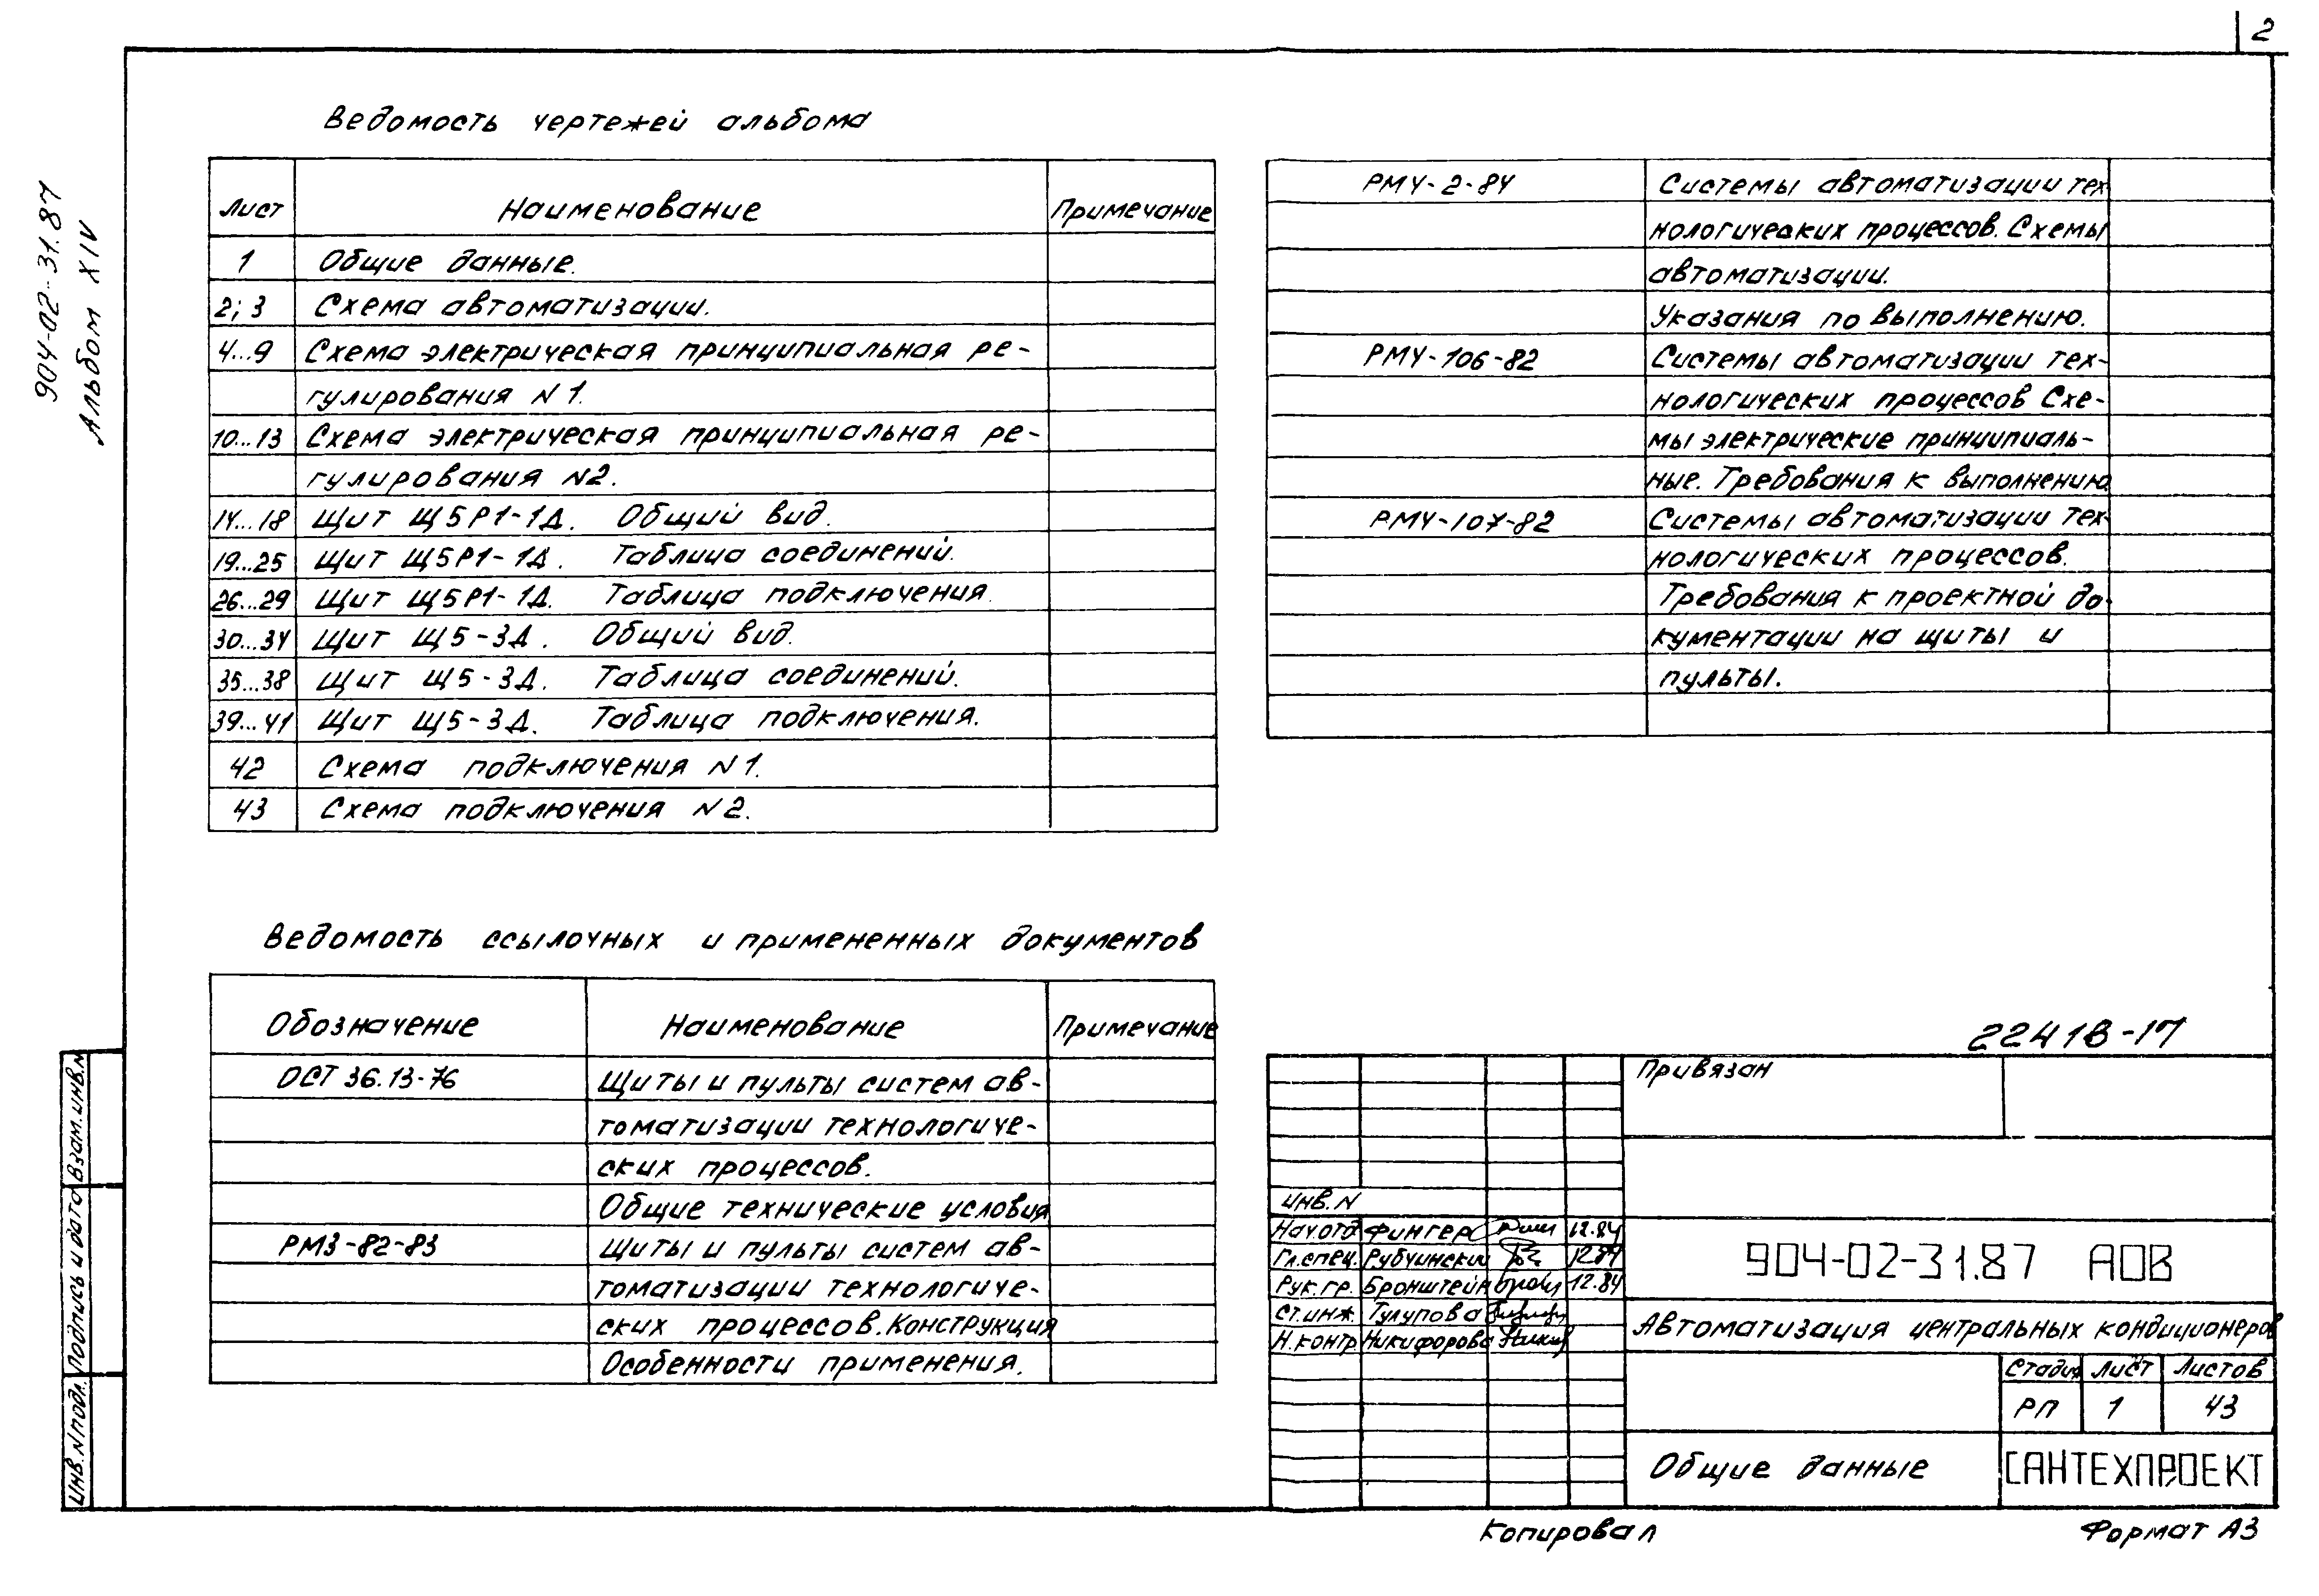 2
904-02-31.87
Альбом XIV
Ведомость чертежей альбома
Лист Наименование Примечание
1 Общие данные.
2; 3 Схема автоматизации.
4...9 Схема электрическая принципиальная ре-
гулирования N1.
10...13 Схема электрическая принципиальная ре-
гулирования N2.
14...18 Щит Щ5Р1-1Д. Общий вид.
19...25 Щит Щ5Р1-1Д. Таблица соединений.
26...29 Щит Щ5Р1-1Д. Таблица подключения.
30...34 Щит Щ5-3Д. Общий вид.
35...38 Щит Щ5-3Д. Таблица соединений.
39...41 Щит Щ5-3Д. Таблица подключения.
42 Схема подключения N1.
43 Схема подключения N2.
Ведомость ссылочных и примененных документов
Обозначение Наименование Примечание
ОСТ 36.13-76 Щиты и пульты систем ав-
томатизации технологиче-
ских процессов.
Общие технические условия
РМ3-82-83 Щиты и пульты систем ав-
томатизации технологиче-
ских процессов. Конструкция
Особенности применения.
РМ4-2-84 Системы автоматизации тех-
нологических процессов. Схемы
автоматизации.
Указания по выполнению.
РМ4-106-82 Системы автоматизации тех-
нологических процессов Схе-
мы электрические принципиаль-
ные. Требования к выполнению
РМ4-107-82 Системы автоматизации тех-
нологических процессов.
Требования к проектной до-
кументации на щиты и
пульты.
22418-17
Привязан
инв. N
Нач.отд Фингер 12.84
Гл.спец. Рубчинский 12.84
Рук.гр. Бронштейн 12.84
Ст.инж. Тулупова
Н.контр Никифорова
904-02-31.87 АОВ
Автоматизация центральных кондиционеров
Стадия Лист Листов
РП 1 43
Общие данные
САНТЕХПРОЕКТ
Взам.инв.N
Подпись и дата
Инв.N подл.
Копировал
Формат А3